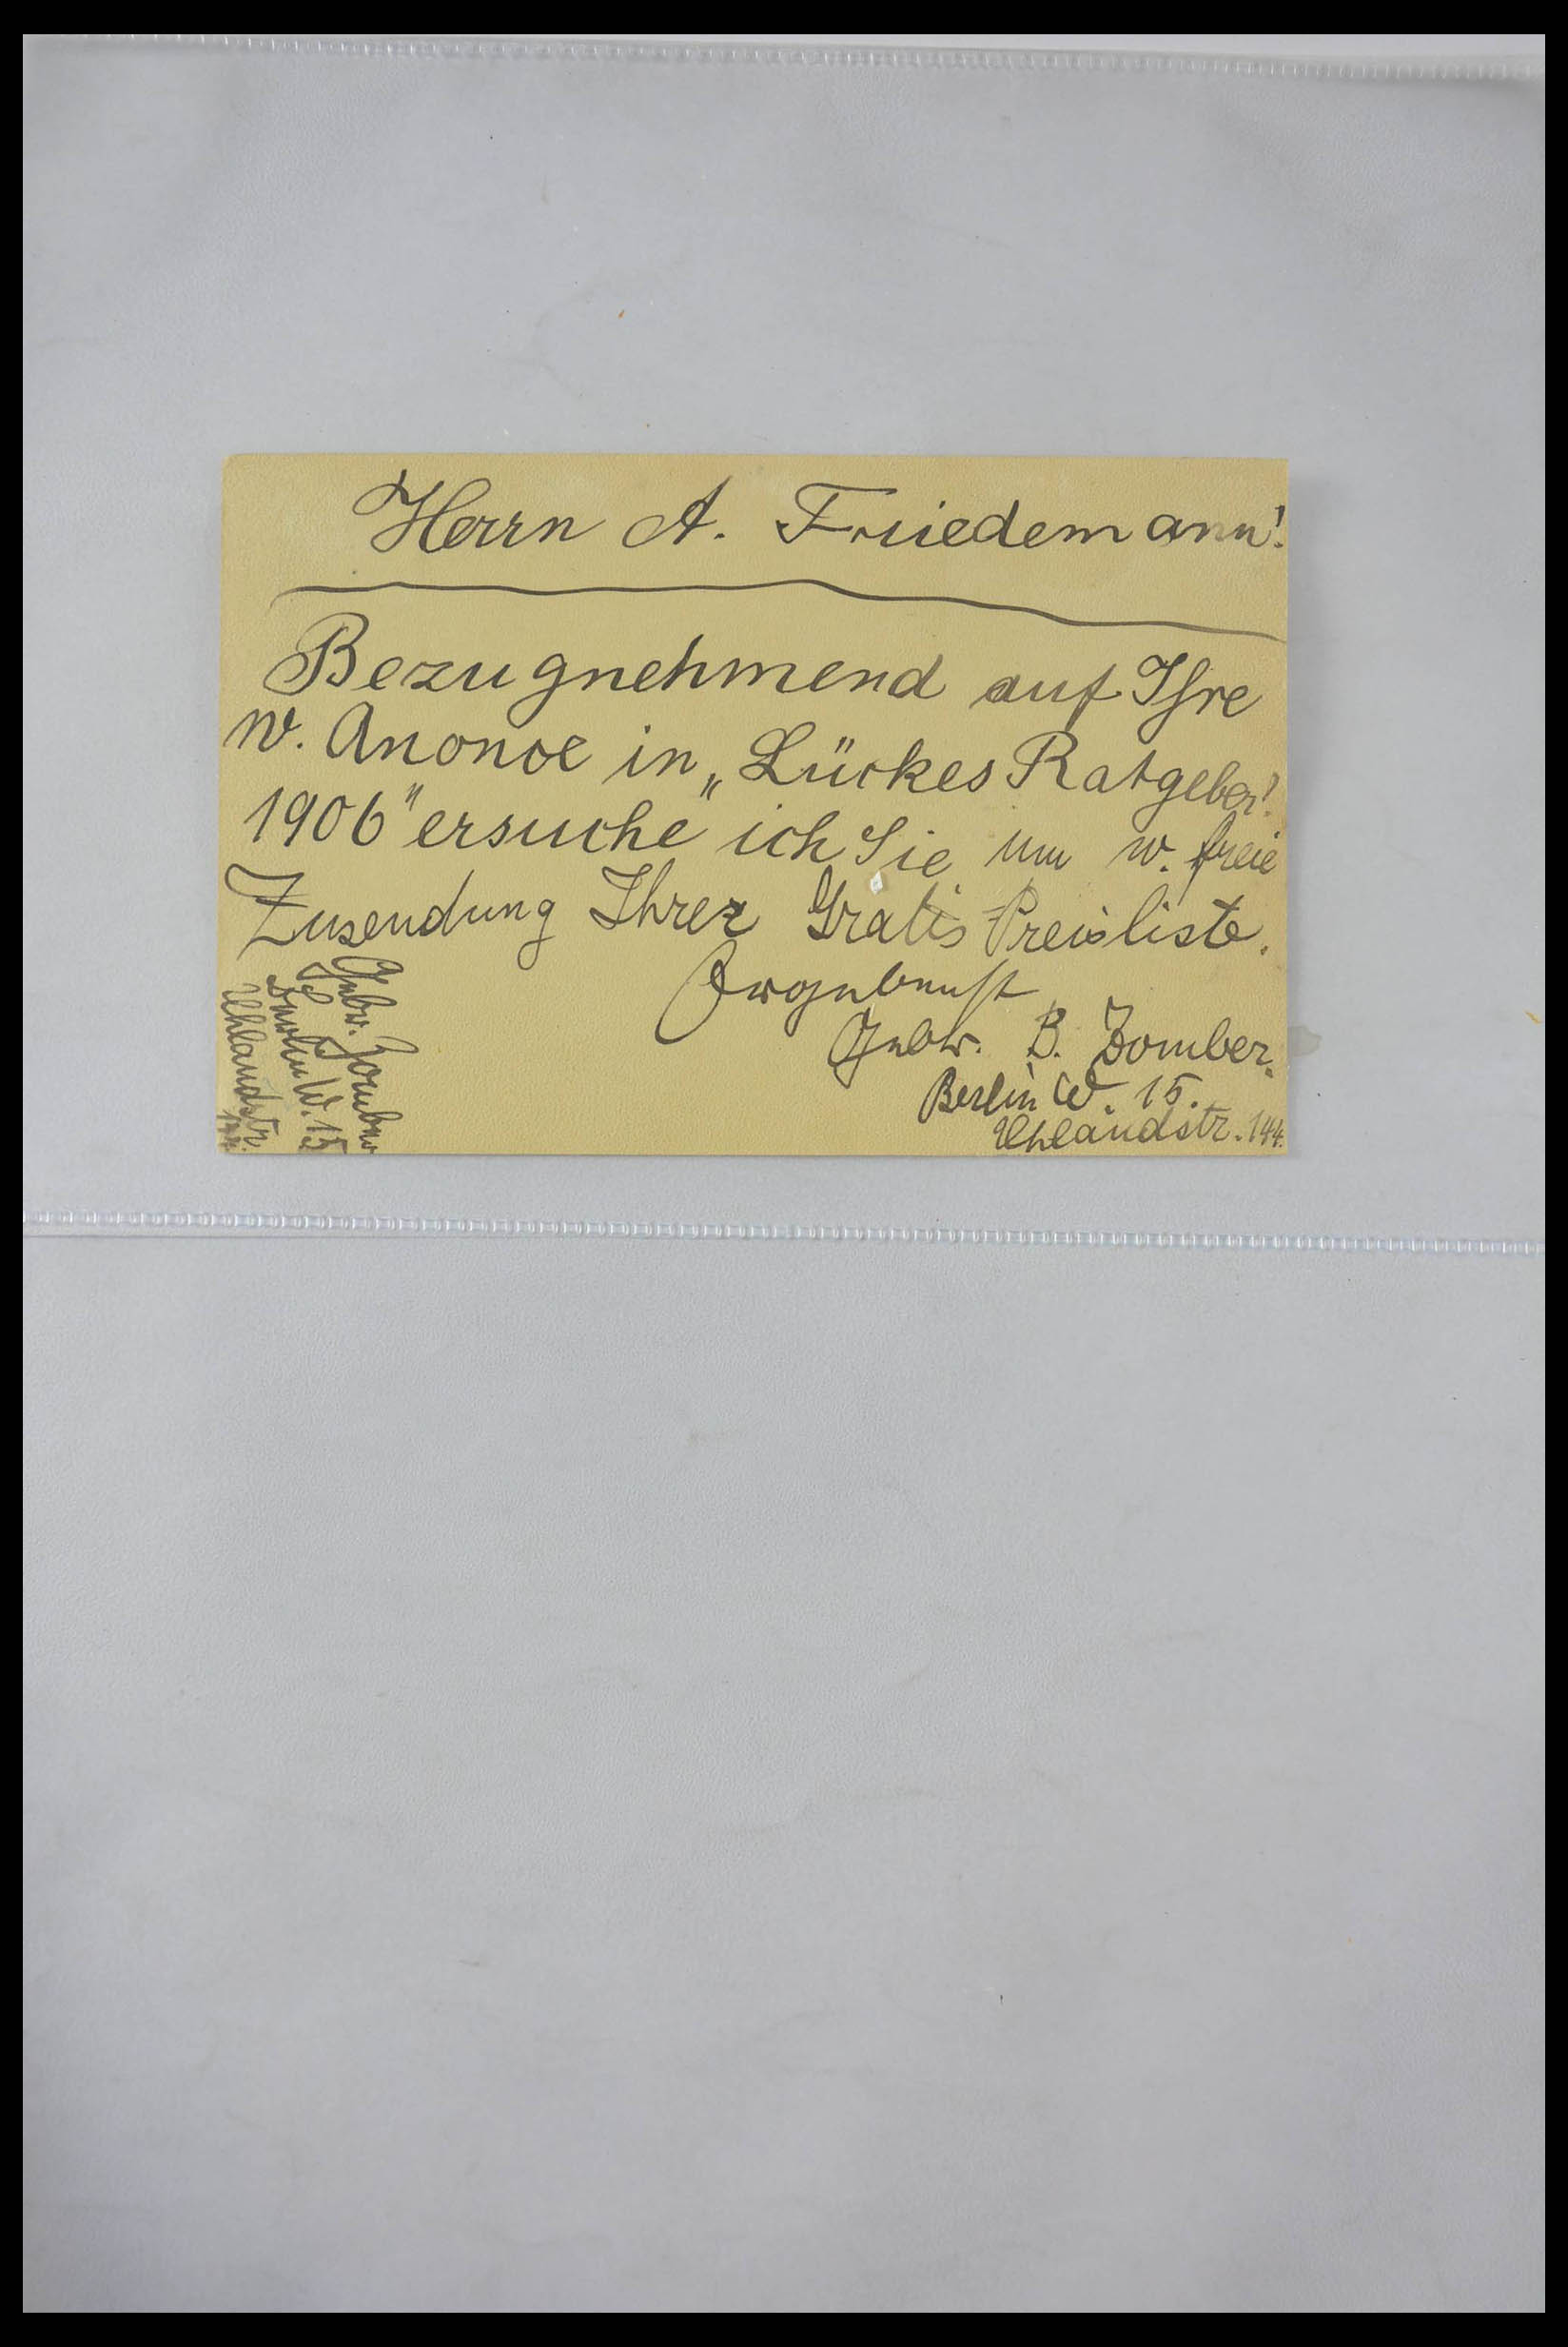 Herrn A. Friedemann!
Bezugnehmend auf Ihre
w. Anonce in „Lückes Ratgeber!
1906" ersuche ich Sie um w. freie
Zusendung Ihrer Gratis Preisliste.
Ergebenst
Gebr. B. Zomber.
Berlin W. 15.
Uhlandstr. 144.
Gebr. Zomber
Berlin W. 15
Uhlandstr.
144.